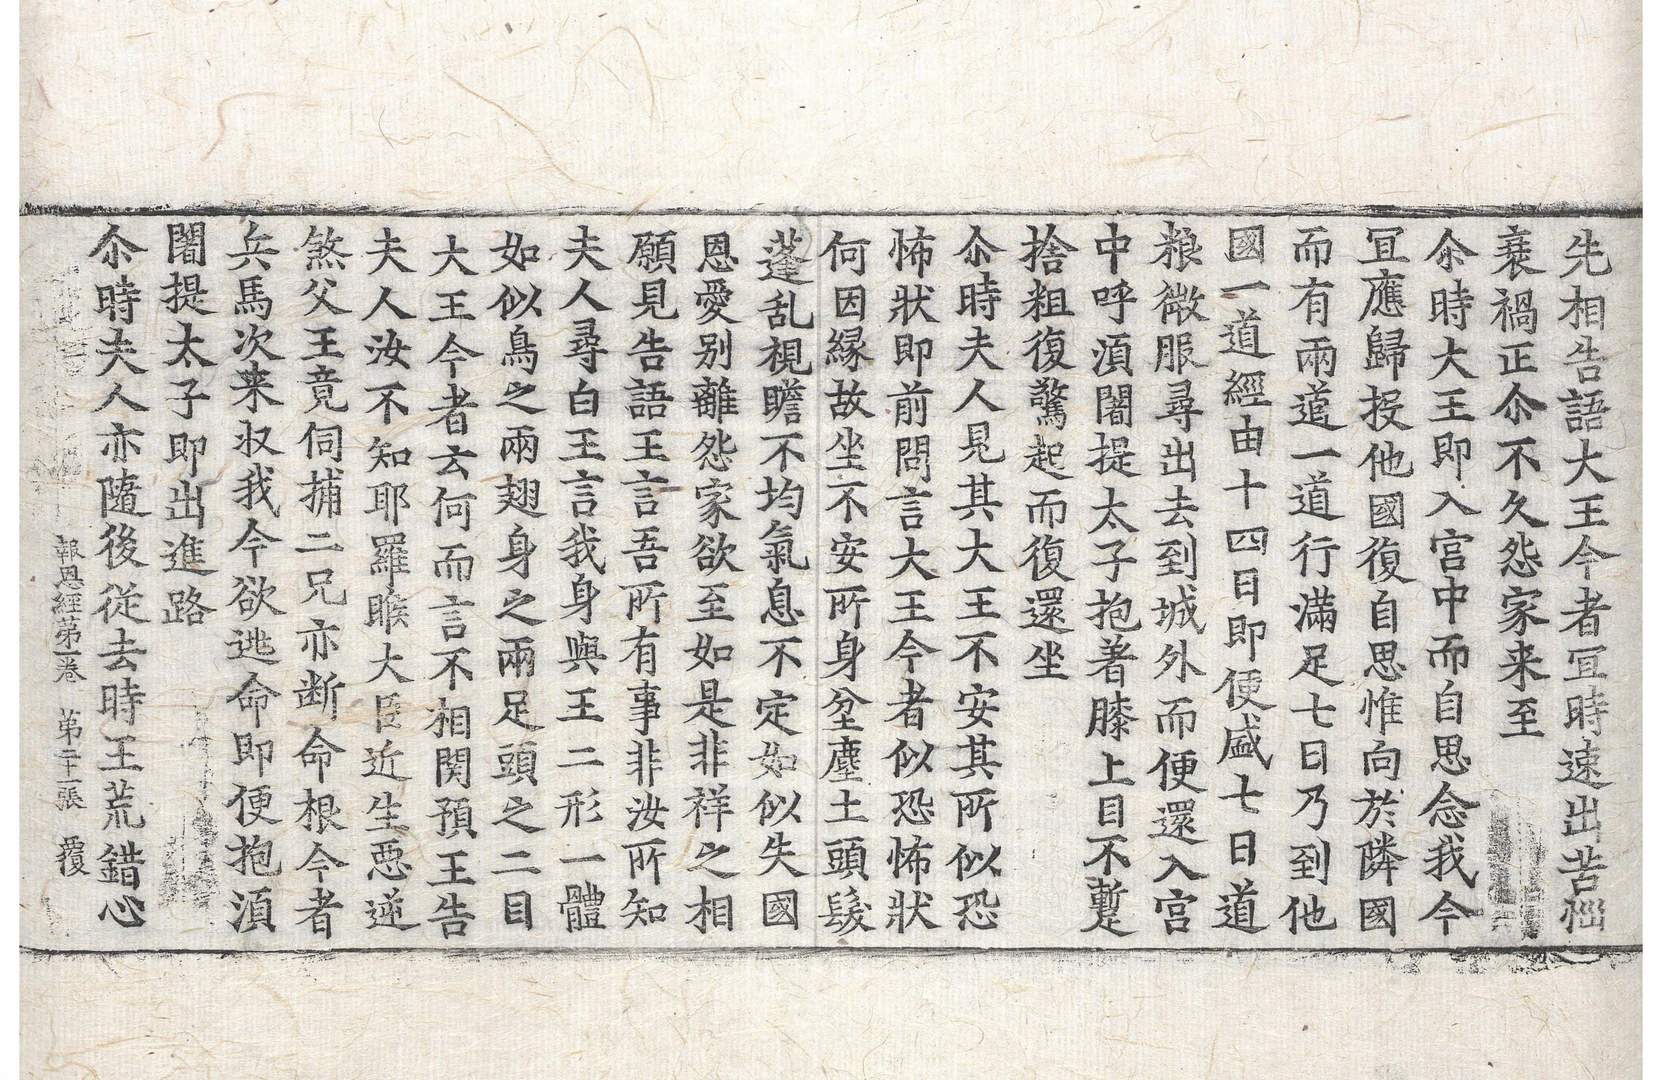 先相告語大王今者冝時速出苦惱
衰禍正尒不久怨家来至
尒時大王即入宫中而自思念我今
冝應歸投他國復自思惟向於隣國
而有兩道一道行滿足七日乃到他
國一道經由十四日即便盛七日道
粮微服尋出去到城外而便還入宫
中呼湏闍提太子抱著膝上目不暫
捨粗復驚起而復還坐
尒時夫人見其大王不安其所似恐
怖狀即前問言大王今者似恐怖狀
何因緣故坐不安所身坌塵土頭䯻
蓬乱視瞻不均氣息不定如似失國
恩愛別離怨家欲至如是非祥之相
願見告語王言吾所有事非汝所知
夫人尋白王言我身與王二形一體
如似鳥之兩翅身之兩足頭之二目
大王今者云何而言不相関預王告
夫人汝不知耶羅睺大臣近生惡逆
煞父王竟伺捕二兄亦断命根今者
兵馬次来収我今欲逃命即便抱湏
闍提太子即出進路
尒時夫人亦隨後從去時王荒錯心
報恩經第一卷 第二十張 覆